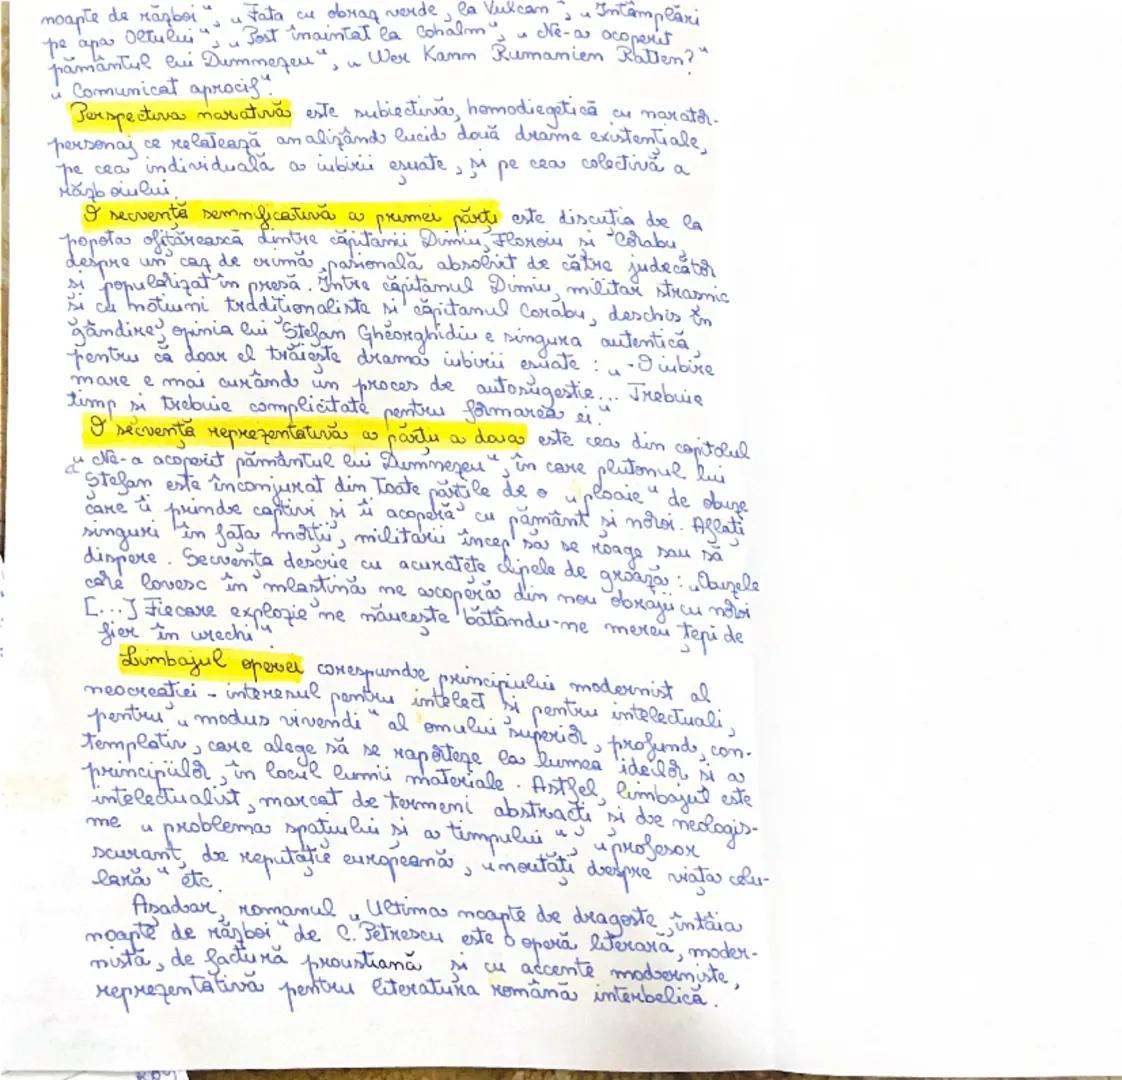 noapte de război", „Fata cu obraz verde, la Vulcan", „Întâmplări
pe apa Oltului", „Post înaintat la Cohalm", „Ne-a acoperit
pământul lui Dumnezeu", „Wer Kann Rumanien Ratten?"
„Comunicat apocrif".
Perspectiva narativă este subiectivă, homodiegetică cu narator-
personaj ce relatează analizând lucid două drame existențiale,
pe cea individuală a iubirii eșuate, și pe cea colectivă a
războiului.
O secvență semnificativă a primei părți este discuția de la
popota ofițărească dintre căpitanii Dimiu, Floroiu și Corabu,
despre un caz de crimă pasională absolvit de către judecător
și popularizat în presă. Între căpitanul Dimiu, militar strașnic
și cu noțiuni tradiționaliste și căpitanul Corabu, deschis în
gândire, opinia lui Ștefan Gheorghidiu e singura autentică,
pentru că doar el trăiește drama iubirii eșuate: „-O iubire
mare e mai curând un proces de autosugestie... Trebuie
timp și trebuie complicitate pentru formarea ei."
O secvență reprezentativă a părții a doua este cea din capitolul
„Ne-a acoperit pământul lui Dumnezeu", în care plutonul lui
Ștefan este înconjurat din toate părțile de o „ploaie" de obuze
care îi prinde captivi și îi acoperă cu pământ și noroi. Aflați
singuri în fața morții, militarii încep să se roage sau să
dispere. Secvența descrie cu acuratețe clipele de groază: „Obuzele
care lovesc în mlaștină ne acoperă din nou obrajii cu noroi
[...] Fiecare explozie ne năucește bătându-ne mereu țepi de
fier în urechi"
Limbajul operei corespunde principiului modernist al
neocreației - interesul pentru intelect și pentru intelectuali,
pentru „modus vivendi" al omului superior, profund, con-
templativ, care alege să se raporteze la lumea ideilor și a
principiilor, în locul lumii materiale. Astfel, limbajul este
intelectualist, marcat de termeni abstracți și de neologis-
me „problema spațiului și a timpului", „profesor
scurant, de reputație europeană, „noutăți despre viața celu-
lară" etc.
Așadar, romanul „Ultima noapte de dragoste, întâia
noapte de război" de C. Petrescu este o operă literară, moder-
nistă, de factură proustiană și cu accente moderniste,
reprezentativă pentru literatura română interbelică.